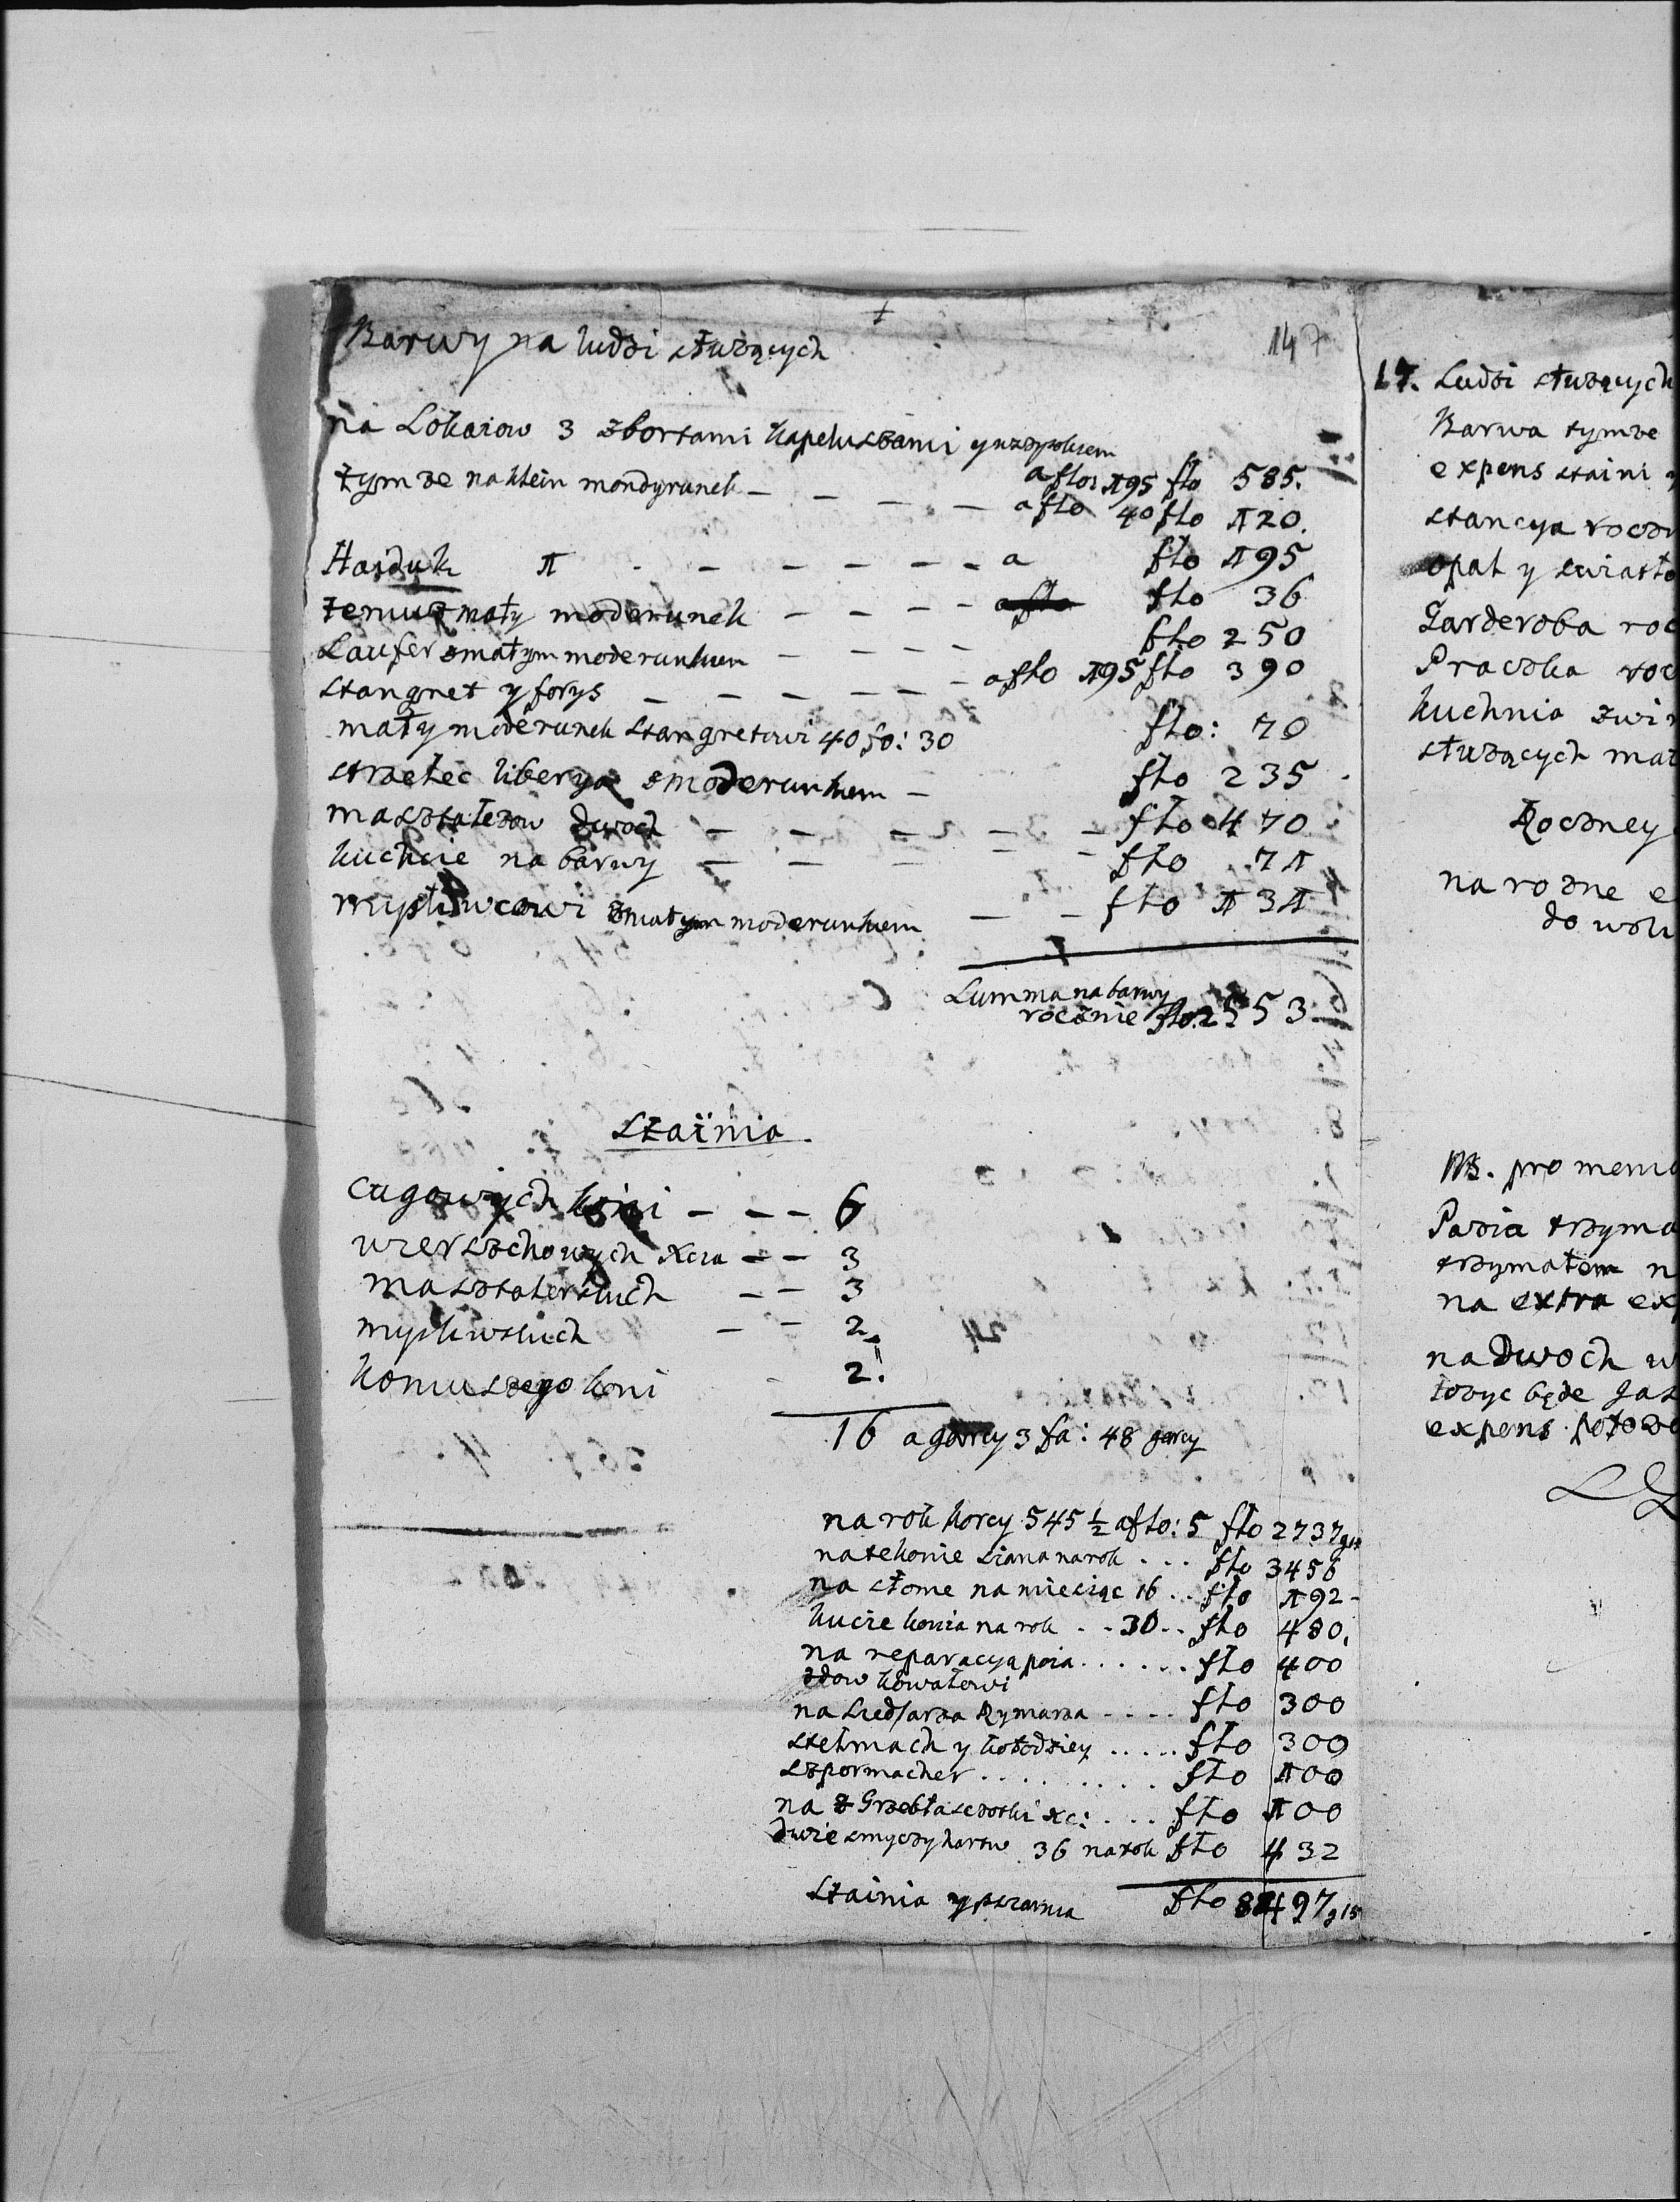 147
Barwy na ludzi służących
na Lokaiow 3 zbortami kapeluszami y
aflo: 195 flo 585.
tymże na klein mondyrunek — — — — aflo 40 flo 120.
Haiduk 1 - - - - - - a flo 195
temuż mały moderunek - - - - flo 36
Laufer zmałym moderunkiem - - - - flo 250
stangret y forys - - - - - - aflo 195 flo 390
mały moderunek stangretowi 40 fo: 30 flo: 70
strzelec liberya zmoderunkiem - flo 235
masztalerzow dwoch - - - - - flo 470
kuchcie na barwy - - - - - flo 71
mysliwcowi zmałym moderunkiem - - flo 131
Summa na barwy
rocznie flo. 2553
Stainia.
cugowych koni - - - 6
wierszchowych Xcia - - 3
masztalerskich - - 3
mysliwskich - - 2
koniuszego koni - 2.
16 a garcy 3 fa: 48 garcy
na rok korcy 545 ½ aflo: 5 flo 2737 g15
na te konie siana na rok . . . flo 3456
na słome na miesiąc 16 . . flo 192 -
kucie konia na rok . . 30 . . flo 480.
na reparacya poia . . . . . . flo 400
zdow kowalowi
na Siedlarza Rymarza - - - - flo 300
stelmach y kołodziey . . . . . flo 300
szpormacher . . . . . . . . . flo 100
na Grzebła szczotki &c: . . . flo 100
dwie smyczy hartow 36 na rok flo 432
Stainia y psiarnia flo 8497 g15
17. Ludzi służących
Barwa tymże
expens staini
stancya
opał y swiatło
Garderoba
Praczka
kuchnia
służących
Roczney
na rozne
do
NB. pro
Pazia
trzymałem
na extra
na dwoch
będe
expens